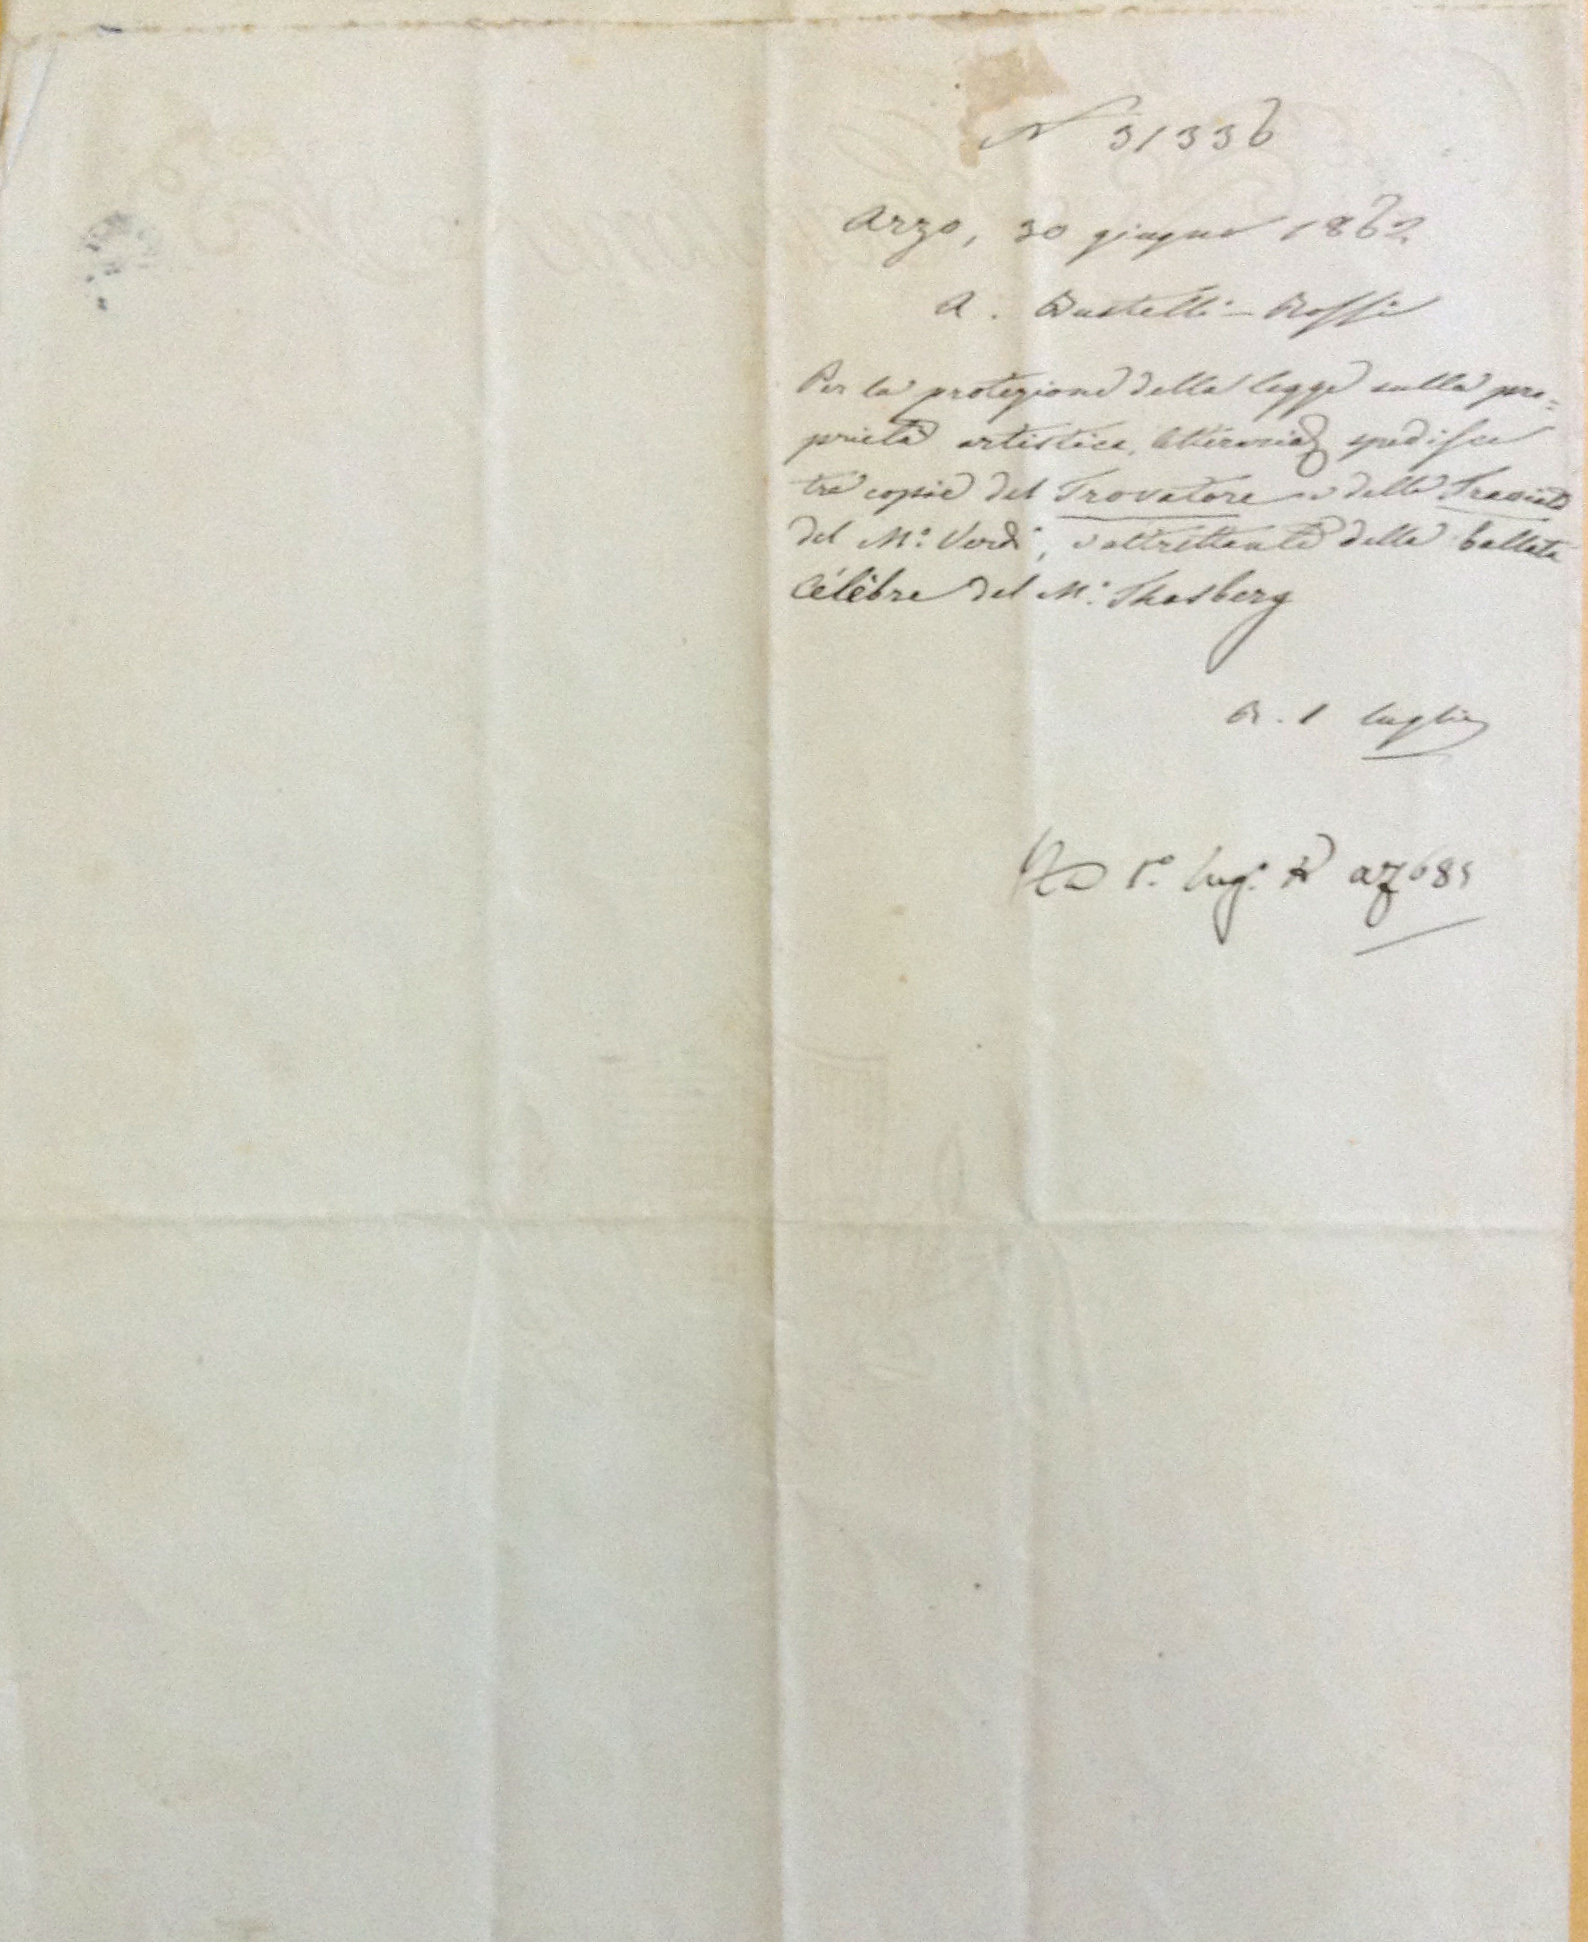 N 31336
Arzo, 30 giugno 1862
A. Bustelli-Rossi
Per la protezione della legge sulla pro=
prietà artistica, letteraria spedisce
tre copie del Trovatore e della Traviata
del M.o Verdi, e altrettante della ballata
célèbre del M.o Thasberg
R. 1 luglio
1.o Lug.o